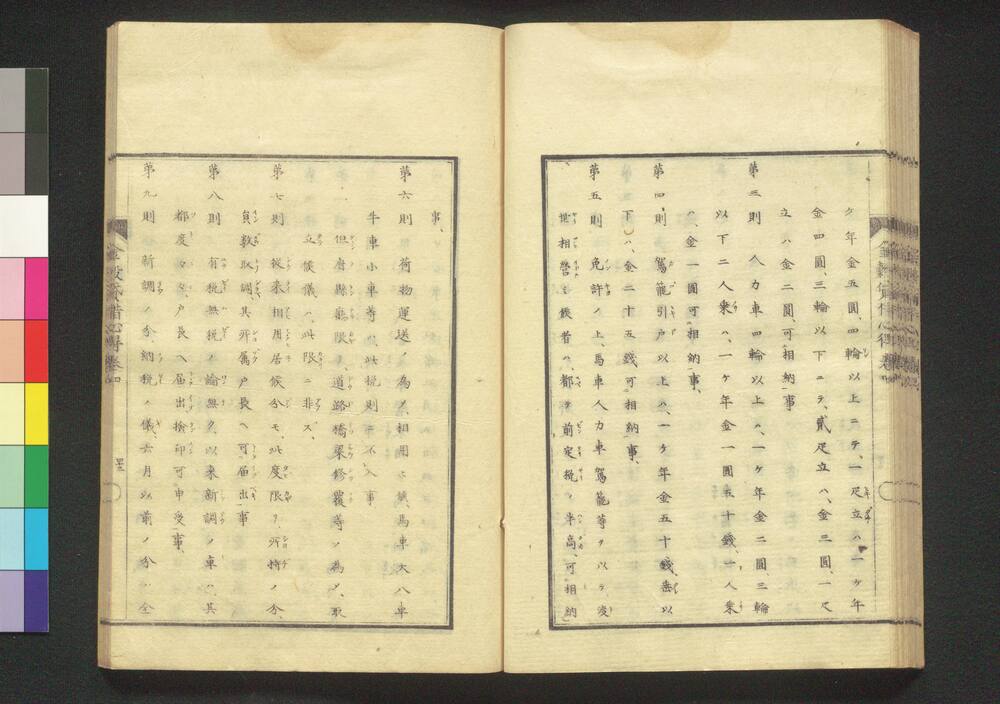 ク年金五圓、四輪以上ニテ、一疋立ハ一ヶ年
金四圓、三輪以下ニテ、貳疋立ハ、金三圓、一疋
立ハ金二圓、可相納事
第三則 人力車四輪以上ハ、一ヶ年金二圓三輪
以下二人乘ハ、一ヶ年金一圓五十錢、一人乘
ハ、金一圓可相納事、
第四則 駕籠引戸以上ハ、一ヶ年金五十錢、垂以
下ハ、金二十五錢可相納事、
第五則 免許ノ上、馬車人力車駕籠等ヲ以テ、渡
世相營候者ハ、都テ前定税ノ半高、可相納
事、
第六則 荷物運送ノ為メ、相用候、馬車大八車
牛車小車等ハ、此税則ニ不入事
一 但府縣廳限リ、道路橋梁修覆等ノ為メ、取
立候儀ハ、此限ニ非ス、
第七則 從來相用居候分モ、此度限リ所持ノ分、
員數取調、其所屬戸長ヘ可届出事
第八則 有税無税ノ論無ク、以來新調ノ車ハ、其
都度々々、戸長ヘ届出撿印可申受事、
第九則 新調ノ分、納税ノ儀、六月以前ノ分ハ全
金穀貸借心得卷四